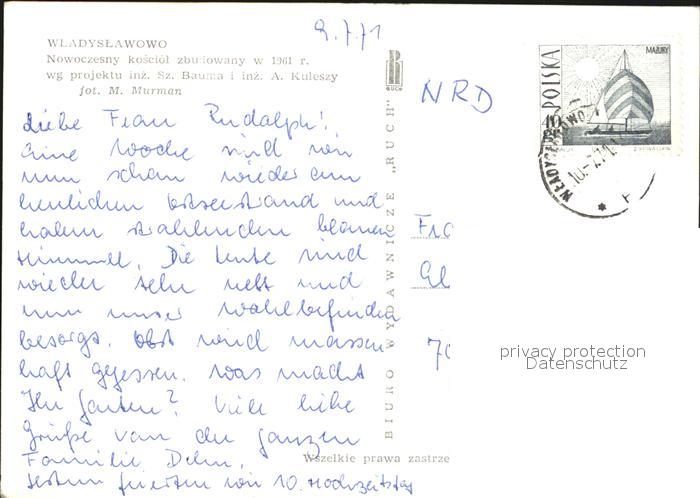 9.7.71
WŁADYSŁAWOWO
Nowoczesny kościół zbudowany w 1961 r.
wg projektu inż. Sz. Bauma i inż. A. Kuleszy
fot. M. Murman
Liebe Frau Rudolph!
Eine Woche sind wir
nun schon wieder am
herrlichen Ostseestrand und
haben strahlenden blauen
Himmel. Die Leute sind
wieder sehr nett und
nun unser Wohlbefinden
besorgt. Obst wird massen
haft gegessen. Was macht
Ihr Garten? Viele liebe
Grüße von der ganzen
Familie Dehn.
Gestern feierten wir 10. Hochzeitstag
BIURO WYDAWNICZE „RUCH"
RUCH
Wszelkie prawa zastrze
NRD
Fra
Gl
70
POLSKA
MAZURY
10
WŁADYSŁAWOWO 1
10.-7.71
privacy protection
Datenschutz